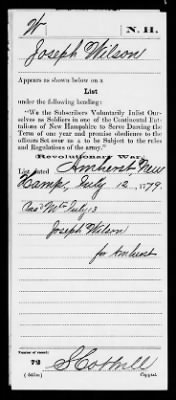 W
N. H.
Joseph Wilson
Appears as shown below on a
List
under the following heading:
"We the Subscribers Voluntarily Inlist Our-
selves as Soldiers in one of the Continental Bat-
talions of New Hampshire to Serve Dureing the
Term of one year and promise obedience to the
officers Set over us & to be Subject to the rules
and Regulations of the army."
Revolutionary War.
List dated Amherst New
Hamp, July 12, 1779.
Mr July 13
Joseph Wilson
for Amherst
Number of record:
72
Copyist.